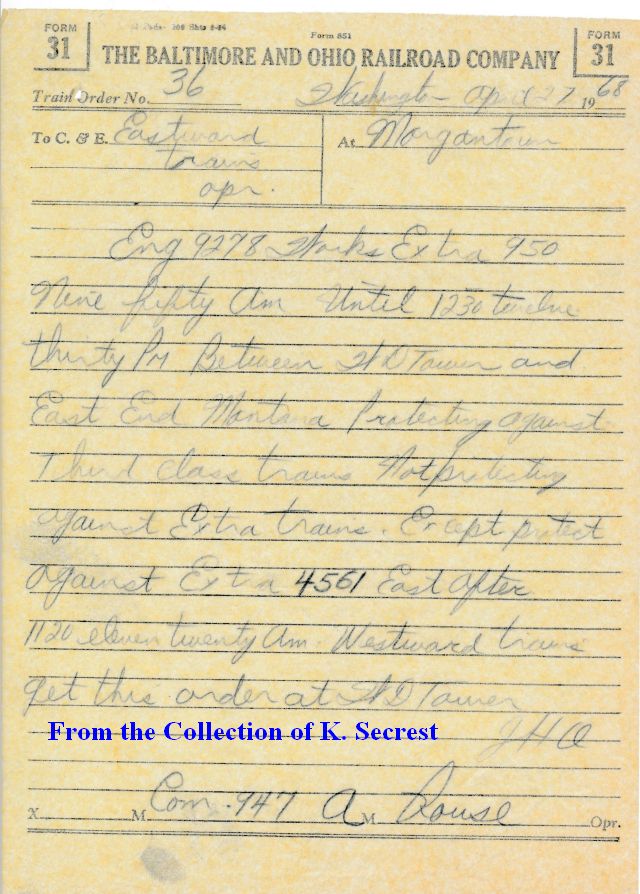 FORM 31
Form 851
FORM 31
THE BALTIMORE AND OHIO RAILROAD COMPANY
Train Order No. 36 Washington April 27 1968
To C. & E. Eastward At Morgantown
trains
opr.
Eng 9278 Works Extra 950
Nine fifty Am Until 1230 twelve
thirty PM Between WD Tower and
East End Montana Protecting against
Third class trains Not protecting
against Extra trains. Except protect
against Extra 4561 East after
1120 eleven twenty Am. Westward trains
get this order at WD Tower
From the Collection of K. Secrest
X M Com. 947 A M Rouse Opr.